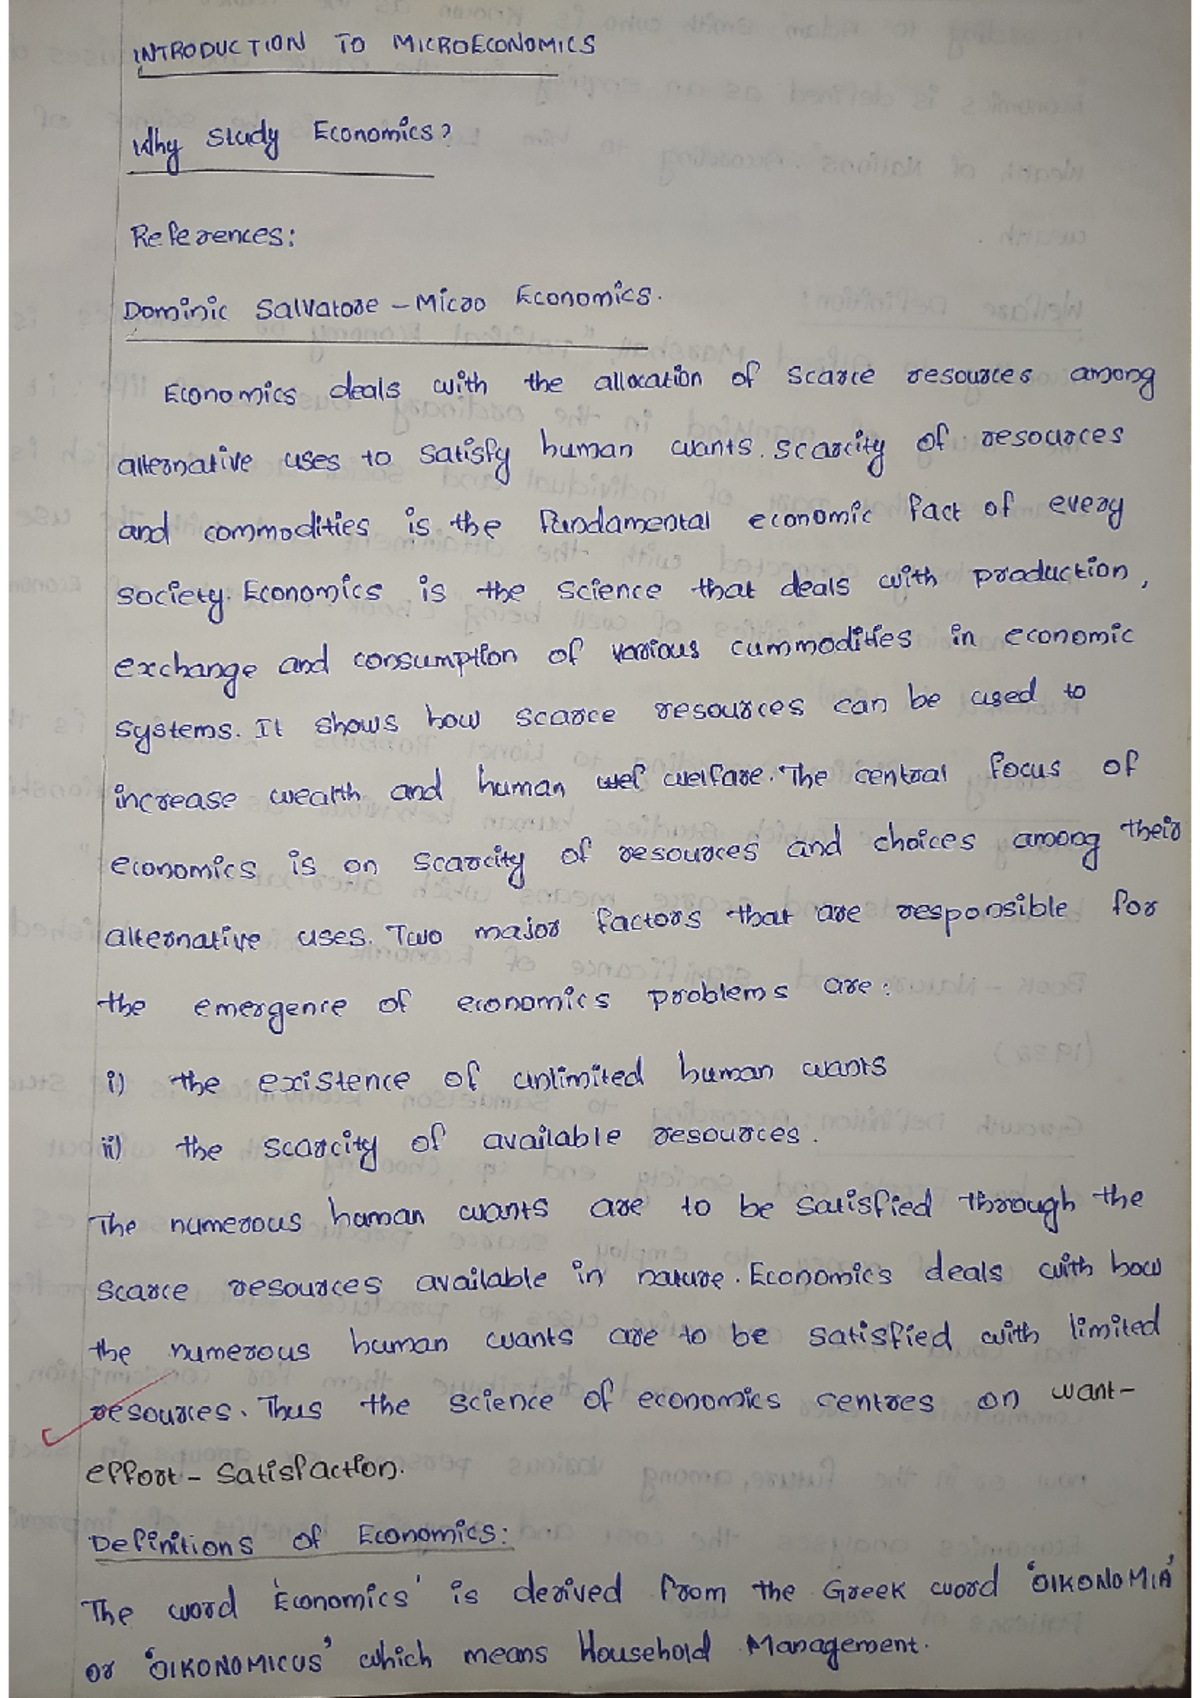 INTRODUCTION TO MICROECONOMICS
Why Study Economics?
References:
Dominic Salvatore - Micro Economics.
Economics deals with the allocation of scarce resources among
alternative uses to satisfy human wants. Scarcity of resources
and commodities is the fundamental economic fact of every
society. Economics is the science that deals with production,
exchange and consumption of various cummodities in economic
systems. It shows how scarce resources can be used to
increase wealth and human wef welfare. The central focus of
economics is on scarcity of resources and choices among their
alternative uses. Two major factors that are responsible for
the emergence of economics problems are:
i) the existence of unlimited human wants
ii) the scarcity of available resources.
The numerous human wants are to be satisfied through the
scarce resources available in nature. Economics deals with how
the numerous human wants are to be satisfied with limited
resources. Thus the science of economics centres on want-
effort - satisfaction.
Definitions of Economics:
The word 'Economics' is derived from the Greek word 'OIKONOMIA'
or 'OIKONOMICUS' which means Household Management.